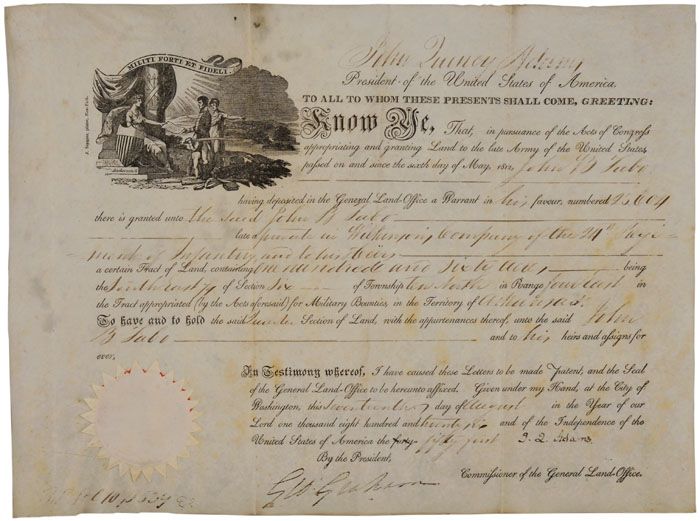 MILITI FORTI ET FIDELI.
John Quincy Adams
President of the United States of America.
TO ALL TO WHOM THESE PRESENTS SHALL COME, GREETING:
Know Ye, That, in pursuance of the Acts of Congress
appropriating and granting Land to the late Army of the United States
passed on and since the sixth day of May, 1812, John B
having deposited in the General Land-Office a Warrant in his favour, numbered
there is granted unto the said John B
late a private in Company of the 24th Regi
ment of Infantry and to his heirs
a certain Tract of Land, containing One hundred and sixty acres, being
the of Section Six of Township ten North in Range four east in
the Tract appropriated (by the Acts aforesaid) for Military Bounties, in the Territory of Arkansas.
To have and to hold the said Quarter Section of Land, with the appurtenances thereof, unto the said John
B and to his heirs and assigns for
ever,
In Testimony whereof, I have caused these Letters to be made Patent, and the Seal
of the General Land-Office to be hereunto affixed. Given under my Hand, at the City of
Washington, this seventeenth day of August in the Year of our
Lord one thousand eight hundred and twenty six and of the Independence of the
United States of America the forty fifty first J. Q. Adams
By the President,
Commissioner of the General Land-Office.
Geo Graham